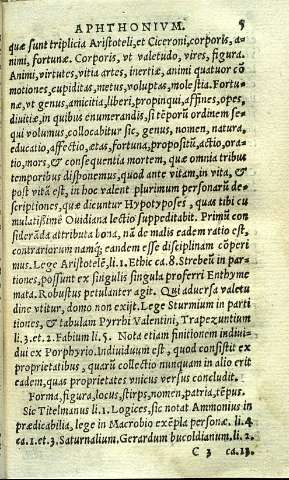 APHTHONIVM. 5
quæ sunt triplicia Aristoteli, et Ciceroni, corporis, a-
nimi, fortunæ. Corporis, vt valetudo, vires, figura.
Animi, virtutes, vitia artes, inertiæ, animi quatuor cō
motiones, cupiditas, metus, voluptas, molestia. Fortu-
næ, vt genus, amicitia, liberi, propinqui, affines, opes,
diuitiæ, in quibus enumerandis, si tēporū ordinem se-
qui volumus, collocabitur sic, genus, nomen, natura,
educatio, affectio, ætas, fortuna, propositū, actio, ora-
tio, mors, & consequentia mortem, quæ omnia tribus
temporibus disponemus, quod ante vitam, in vita, &
post vitā est, in hoc valent plurimum personarū de-
scriptiones, quæ dicuntur Hypotyposes, quas tibi cu
mulatißimè Ouidiana lectio suppeditabit. Primū con
siderāda attributa bona, nā de malis eadem ratio est,
contrariorum namq; eandem esse disciplinam cōperi
mus. Lege Aristotelē, li. 1. Ethic ca. 8. Strebeū in par-
tiones, possunt ex singulis singula proferri Enthyme
mata. Robustus petulanter agit. Qui aduersa valetu
dine vtitur, domo non exijt. Lege Sturmium in parti
tiones, & tabulam Pyrrhi Valentini, Trapezuntium
li. 3. et 2. Fabium li. 5. Nota etiam finitionem indiui-
dui ex Porphyrio. Indiuiduum est, quod consistit ex
proprietatibus, quarū collectio nunquam in alio erit
eadem, quas proprietates vnicus versus concludit.
Forma, figura, locus, stirps, nomen, patria, tēpus.
Sic Titelmanus li. 1. Logices, sic notat Ammonius in
prædicabilia, lege in Macrobio exēpla personæ li. 4
ca. 1. et 3. Saturnalium. Gerardum bucoldianum. li. 2.
C 3 ca. 13.